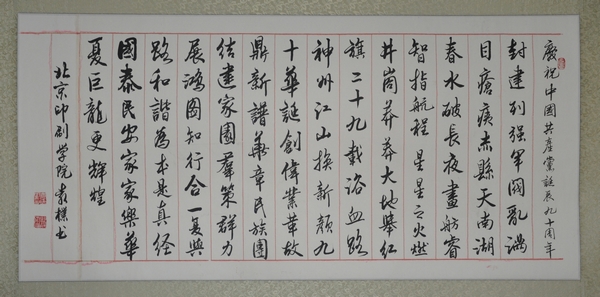 慶祝中國共産黨誕辰九十周年
封建列强軍閥亂滿
目瘡痍赤縣天南湖
春水破長夜畫舫睿
智指航程星星之火燃
井崗莽莽大地舉紅
旗二十九載浴血路
神州江山換新顔九
十華誕創偉業革故
鼎新譜華章民族團
结建家園羣策群力
展鴻圖知行合一复興
路和諧為本是真経
國泰民安家家樂華
夏巨龍更輝煌
北京印刷学院书